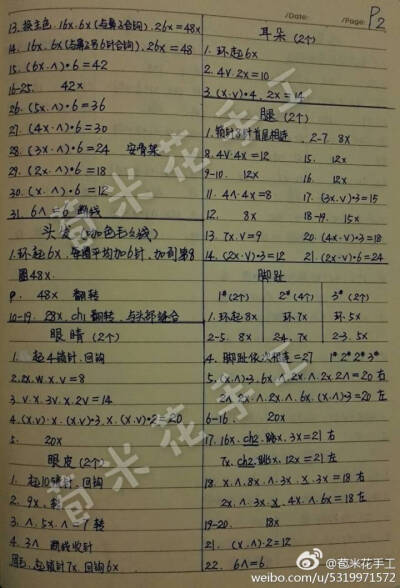 /Date:
/Page: P2
13. 换主色. 16x. 6x(与鼻子合钩). 26x = 48x
14. 16x. 6x(与鼻子另6针合钩). 26x = 48
15. (6x.∧)·6 = 42
16-25. 42x
26. (5x.∧)·6 = 36
27. (4x.∧)·6 = 30
28. (3x.∧)·6 = 24 安骨架
29. (2x.∧)·6 = 18
30. (x.∧)·6 = 12
31. 6∧ = 6 断线
头发(咖色毛线)
1. 环起6x, 每圈平均加6针, 加到第8
圈48x.
9. 48x 翻转
10-19. 28x, ch1 翻转, 与头部缝合
眼睛(2个)
1. 起4锁针, 回钩
2. 2x.w.x.v = 8
3. v.x.3v.x.2v = 14
4. (x.v).x.(x.v)·3.x.(x.v)·2 = 20
5. 20x
眼皮(2个)
1. 起10锁针, 回钩
2. 9x, 转
3. ∧.5x.∧ = 7 转
4. 3∧ 断线收针
起锁针7x, 回钩6x
耳朵(2个)
1. 环起6x
2. 4v.2x = 10
3. (x.v)·4, 2x = 14
腿(2个)
1. 锁针8针首尾相连, 2-7. 8x
8. 4v.4x = 12 15. 12x
9-10. 12x 16. 12x
11. 4∧.4x = 8 17. (3x.v)·3 = 15
12. 8x 18-19. 15x
13. 7x.v = 9 20. (4x.v)·3 = 18
14. (2x.v)·3 = 12 21. (2x.v)·6 = 24
脚趾
1#(2个) 2#(4个) 3#(2个)
1. 环起8x 环.7x 环.5x
2-5. 8x 2-4. 7x 2-3. 5x
4. 脚趾依次相连 = 27 1# 2# 2# 3#
5. (x.∧)·3. 6x.∧.2x.∧.2x.2∧ = 20 右
2∧.2x.∧.2x.∧.6x.(x.∧)·3 = 20 左
6-16. 20x
17. 16x. ch2. 跳x. 3x = 21 右
7x. ch2. 跳x, 12x = 21 左
18. x.∧.8x.∧.3x.x.3x = 18 右
2x.∧.3x.x.4x.∧.6x = 18 左
19-20. 18x
21. (x.∧)·2 = 12
22. 6∧ = 6
苞米花手工
苞米花手工
@苞米花手工
weibo.com/u/5319971572